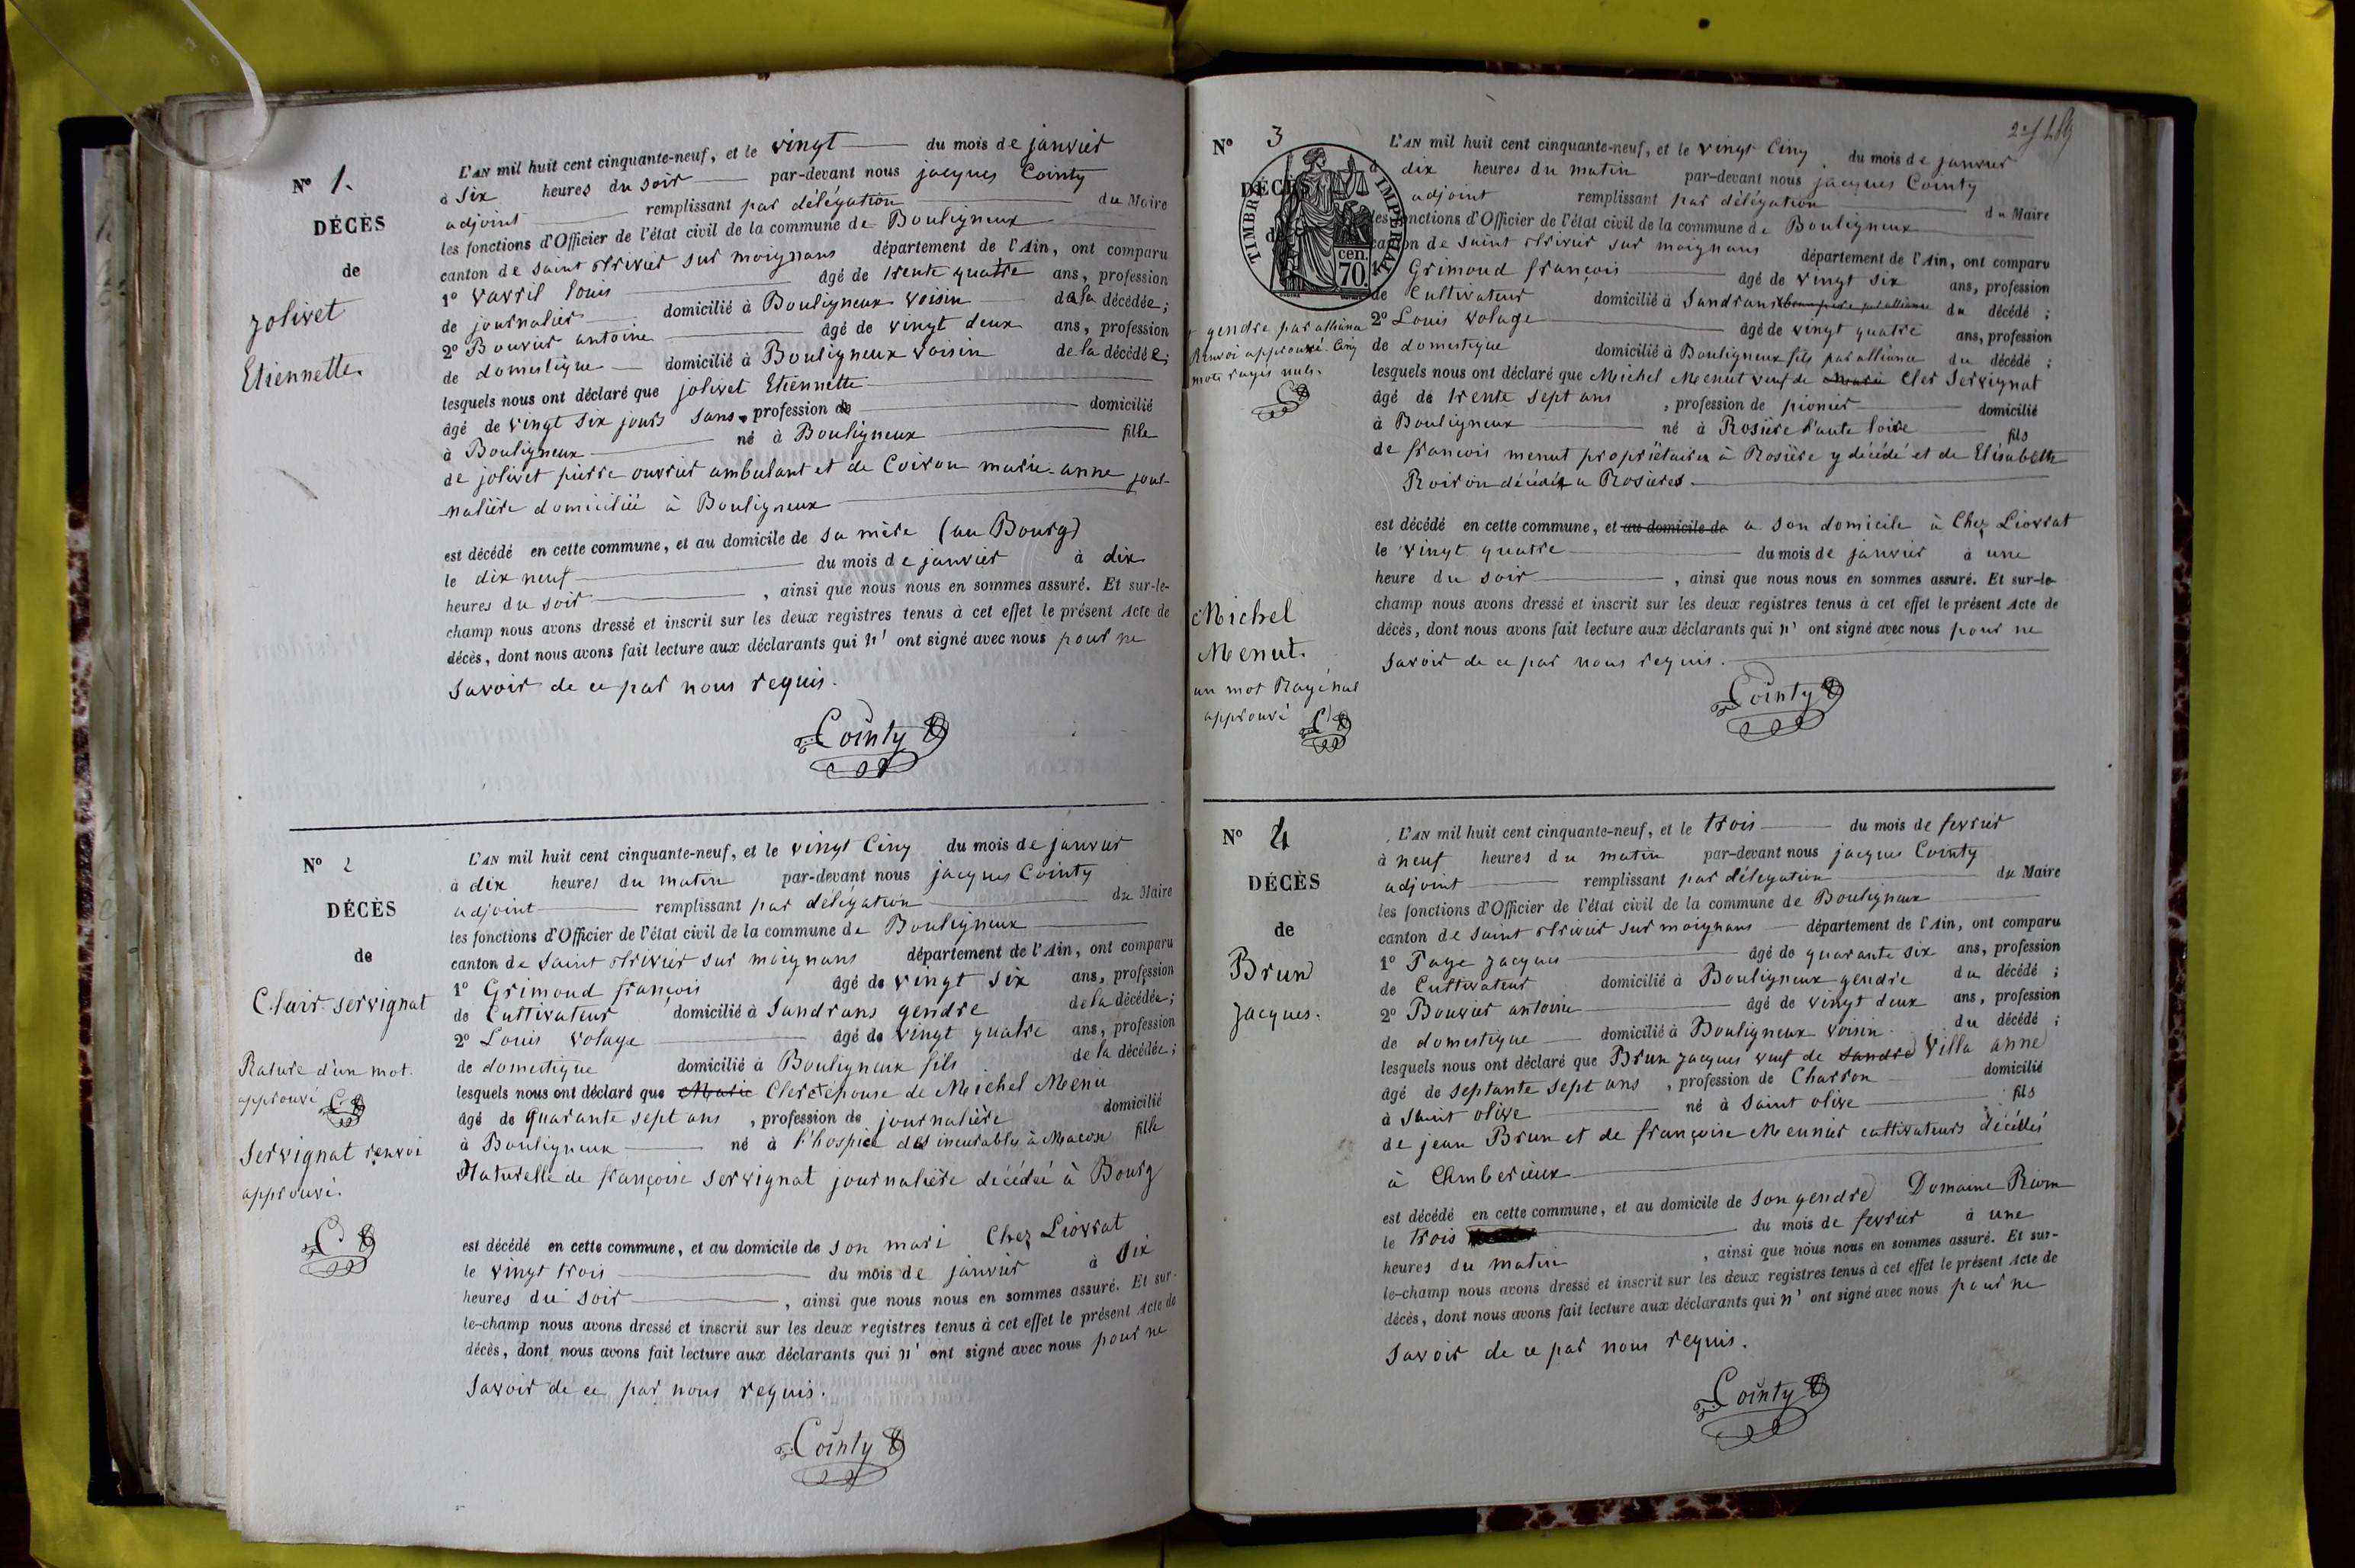 N° 1.
DÉCÈS
de
jolivet
Etiennette.
L'AN mil huit cent cinquante-neuf, et le vingt du mois de janvier
à six heures du soir par-devant nous jacques Cointy
adjoint remplissant par délégation du Maire
les fonctions d'Officier de l'état civil de la commune de Bouligneux
canton de saint trivier sur moignans département de l'Ain, ont comparu
1° vavril louis âgé de trente quatre ans, profession
de journalier domicilié à Bouligneux voisin de la décédée;
2° Bouvier antoine âgé de vingt deux ans, profession
de domestique domicilié à Bouligneux voisin de la décédée;
lesquels nous ont déclaré que jolivet Etiennette
âgé de vingt six jours sans profession de domicilié
à Bouligneux né à Bouligneux fille
de jolivet pierre ouvrier ambulant et de Coiron marie-anne jour-
nalière domiciliée à Bouligneux
est décédé en cette commune, et au domicile de sa mère (au Bourg)
le dix neuf du mois de janvier à dix
heures du soir, ainsi que nous nous en sommes assuré. Et sur-le-
champ nous avons dressé et inscrit sur les deux registres tenus à cet effet le présent Acte de
décès, dont nous avons fait lecture aux déclarants qui n' ont signé avec nous pour ne
savoir de ce par nous requis.
Cointy
N° 2
DÉCÈS
de
Clair servignat
Rature d'un mot.
approuvé
Servignat renvoi
approuvé.
L'AN mil huit cent cinquante-neuf, et le vingt Cinq du mois de janvier
à dix heures du matin par-devant nous jacques Cointy
adjoint remplissant par délégation du Maire
les fonctions d'Officier de l'état civil de la commune de Bouligneux
canton de saint trivier sur moignans département de l'Ain, ont comparu
1° Grimoud françois âgé de vingt six ans, profession
de Cultivateur domicilié à Sandrans gendre de la décédée;
2° Louis volage âgé de vingt quatre ans, profession
de domestique domicilié à Bouligneux fils de la décédée;
lesquels nous ont déclaré que Marie Cler épouse de Michel Menu
âgé de quarante sept ans, profession de journalière domicilié
à Bouligneux né à l'hospice des incurables à Macon fille
Naturelle de françoise servignat journalière décédée à Bourg
est décédé en cette commune, et au domicile de son mari Chez Liovrat
le vingt trois du mois de janvier à six
heures du soir, ainsi que nous nous en sommes assuré. Et sur-
le-champ nous avons dressé et inscrit sur les deux registres tenus à cet effet le présent Acte de
décès, dont nous avons fait lecture aux déclarants qui n' ont signé avec nous pour ne
savoir de ce par nous requis.
Cointy
N° 3
DÉCÈS
de
TIMBRE IMPÉRIAL
70 cen.
gendre par alliance
Renvoi approuvé. Cinq
mots rayés nuls.
Michel
Menut.
un mot Rayé nul
approuvé
L'AN mil huit cent cinquante-neuf, et le vingt Cinq du mois de janvier
dix heures du matin par-devant nous jacques Cointy
adjoint remplissant par délégation du Maire
les fonctions d'Officier de l'état civil de la commune de Bouligneux
canton de saint trivier sur moignans département de l'Ain, ont comparu
1° Grimoud françois âgé de vingt six ans, profession
de Cultivateur domicilié à Sandrans du décédé;
2° Louis volage âgé de vingt quatre ans, profession
de domestique domicilié à Bouligneux fils par alliance du décédé;
lesquels nous ont déclaré que Michel Menut veuf de Marie Cler Servignat
âgé de trente sept ans, profession de pionier domicilié
à Bouligneux né à Rosière haute loire fils
de francois menut propriétaire à Rosière y décédé et de Elisabette
Roiron décédée a Rosieres.
est décédé en cette commune, et au domicile de a son domicile à Chez Liovrat
le vingt quatre du mois de janvier à une
heure du soir, ainsi que nous nous en sommes assuré. Et sur-le-
champ nous avons dressé et inscrit sur les deux registres tenus à cet effet le présent Acte de
décès, dont nous avons fait lecture aux déclarants qui n' ont signé avec nous pour ne
savoir de ce par nous requis.
Cointy
N° 4
DÉCÈS
de
Brun
jacques.
L'AN mil huit cent cinquante-neuf, et le trois du mois de fevrier
à neuf heures du matin par-devant nous jacques Cointy
adjoint remplissant par délégation du Maire
les fonctions d'Officier de l'état civil de la commune de Bouligneux
canton de saint trivier sur moignans département de l'Ain, ont comparu
1° Page jacques âgé de quarante six ans, profession
de Cultivateur domicilié à Bouligneux gendre du décédé;
2° Bouvier antoine âgé de vingt deux ans, profession
de domestique domicilié à Bouligneux voisin du décédé;
lesquels nous ont déclaré que Brun jacques veuf de Villa anne
âgé de septante sept ans, profession de Charron domicilié
à saint olive né à saint olive fils
de jean Brun et de françoise Meunier cultivateurs décédés
à Amberieux
est décédé en cette commune, et au domicile de son gendre Domaine Riom
le trois du mois de fevrier à une
heures du matin, ainsi que nous nous en sommes assuré. Et sur-
le-champ nous avons dressé et inscrit sur les deux registres tenus à cet effet le présent Acte de
décès, dont nous avons fait lecture aux déclarants qui n' ont signé avec nous pour ne
savoir de ce par nous requis.
Cointy